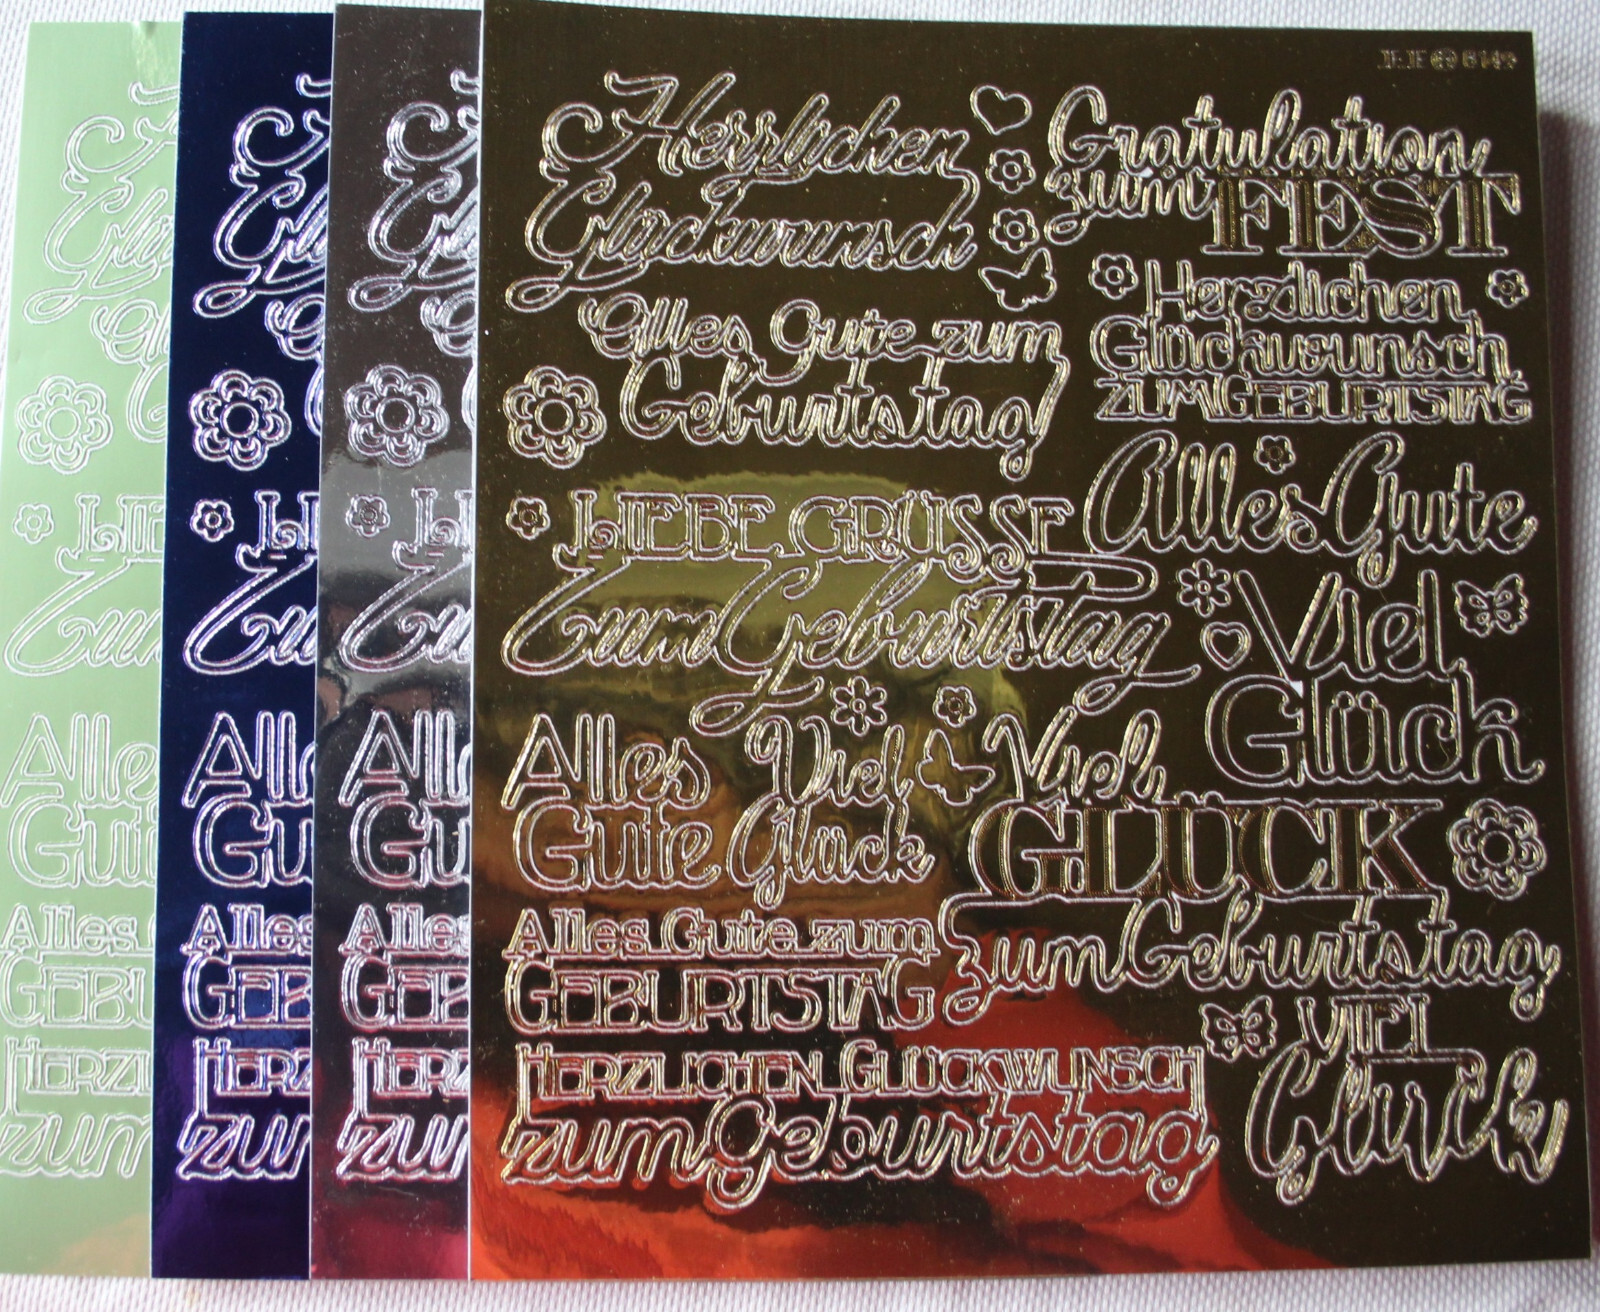 Herzlichen
Glückwunsch
Gratulation
zum FEST
Herzlichen
Glückwunsch
ZUM GEBURTSTAG
Alles Gute zum
Geburtstag
Alles Gute
LIEBE GRÜSSE
Zum Geburtstag
Viel
Glück
Alles
Gute
Viel
Glück
Viel
GLÜCK
zum Geburtstag
Alles Gute zum
GEBURTSTAG
HERZLICHEN GLÜCKWUNSCH
zum Geburtstag
VIEL
Glück